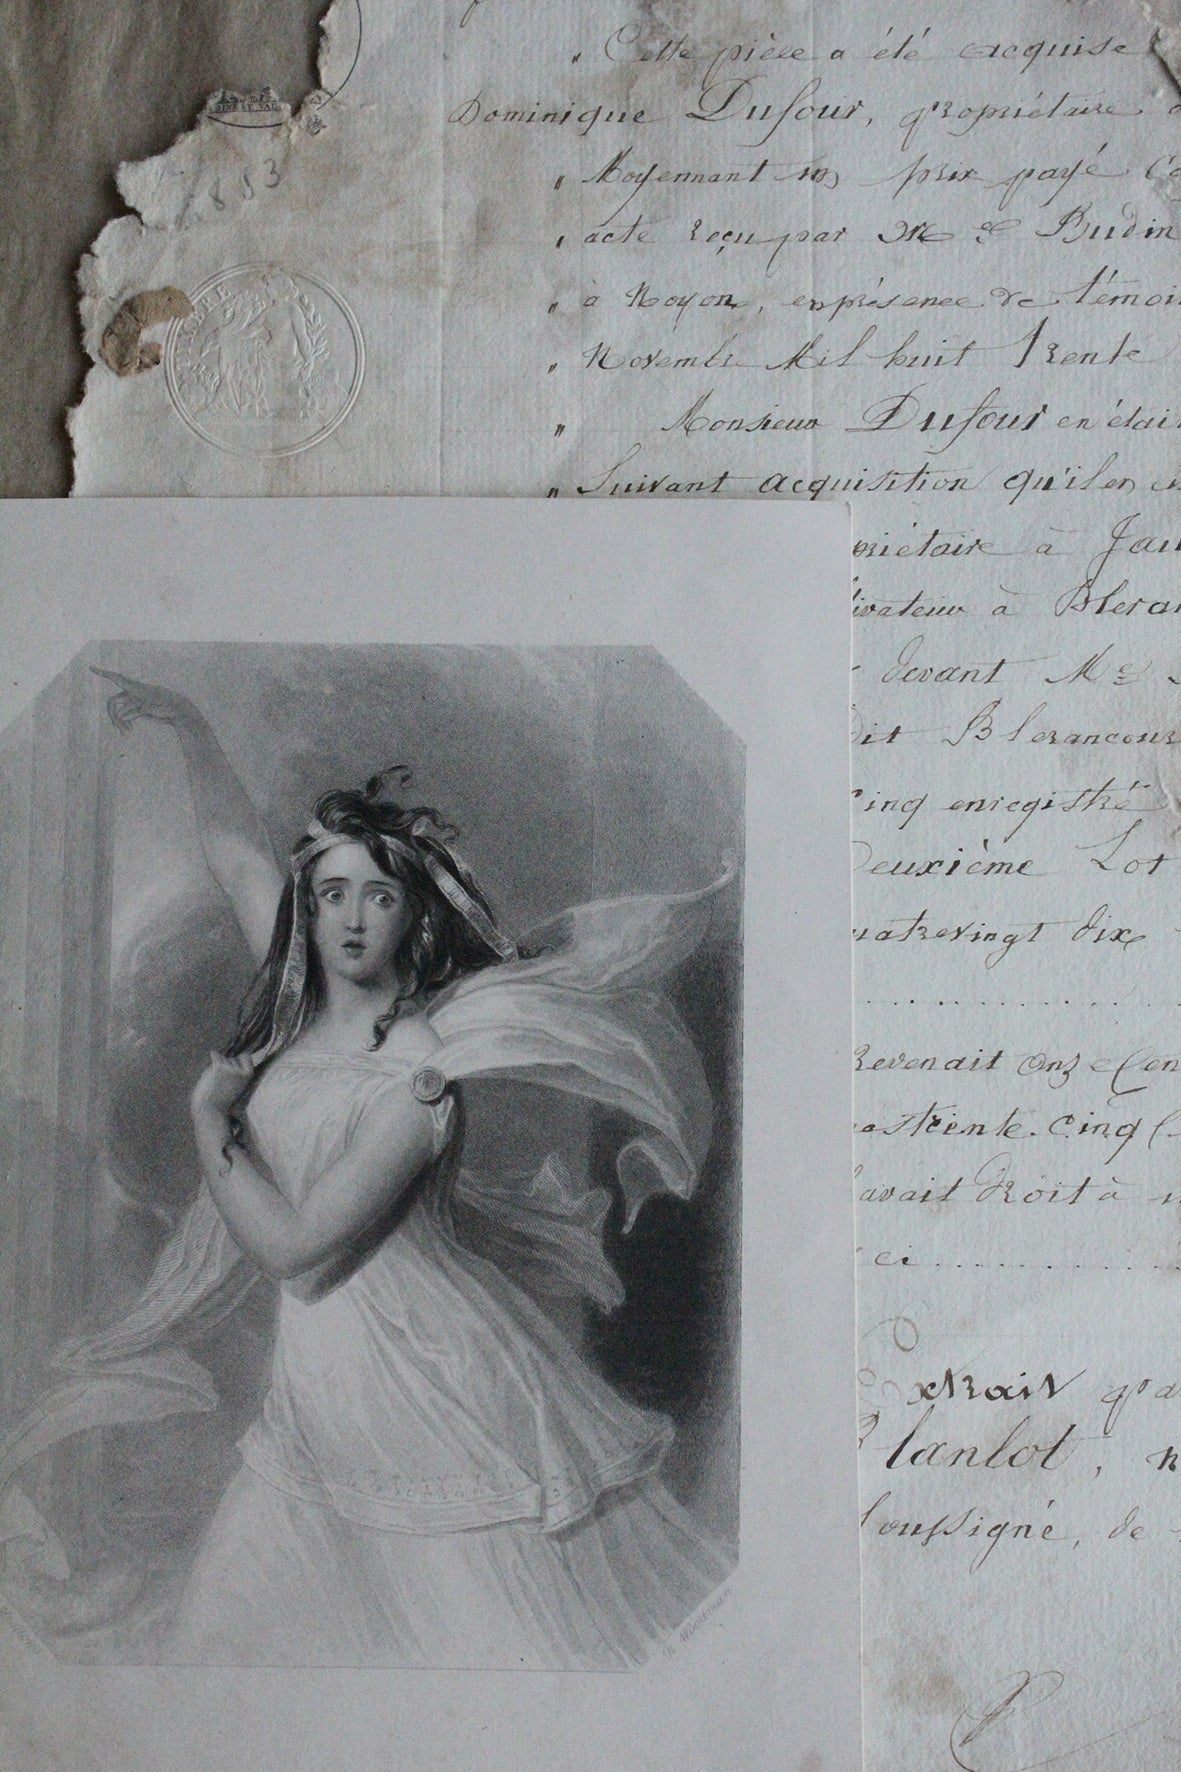 „ Cette pièce a été acquise
Dominique Dufour, propriétaire
„ Moyennant un prix payé
„ acte reçu par Me Budin
„ à Noyon, en présence de témoi
„ Novembre Mil huit Trente
„ Monsieur Dufour en était
„ Suivant acquisition qu'il en
priétaire à Jau
tivateur à Bleran
devant Me
dit Blerancour
Cinq enregistré
Deuxième Lot
uatrevingt dix
Revenait onze Cen
trente cinq
avait droit à
ci
Extrait pa
Blanlot, n
soussigné, de
1883